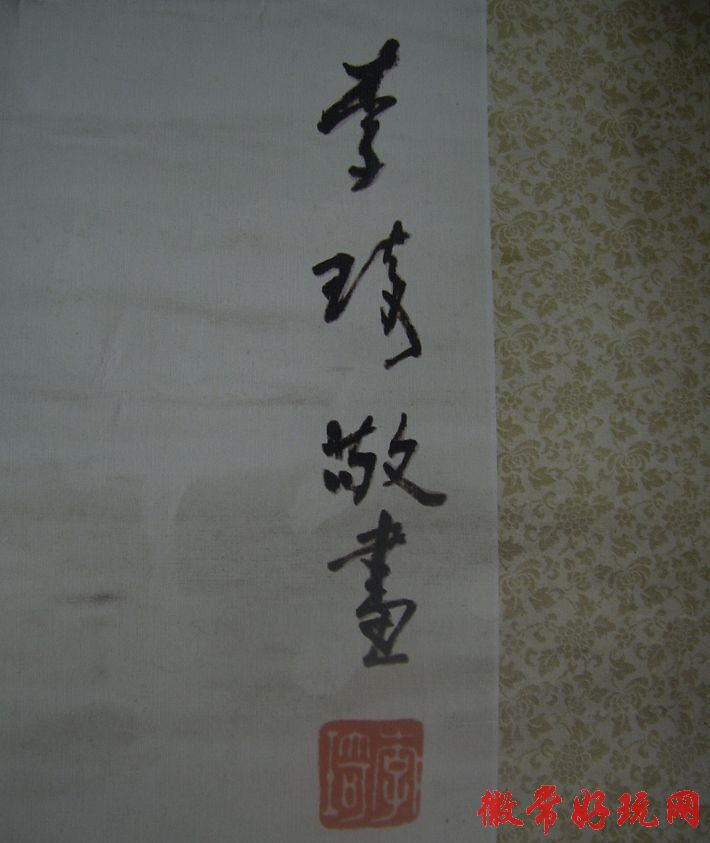 李琦敬畫
李琦
徽常好玩网